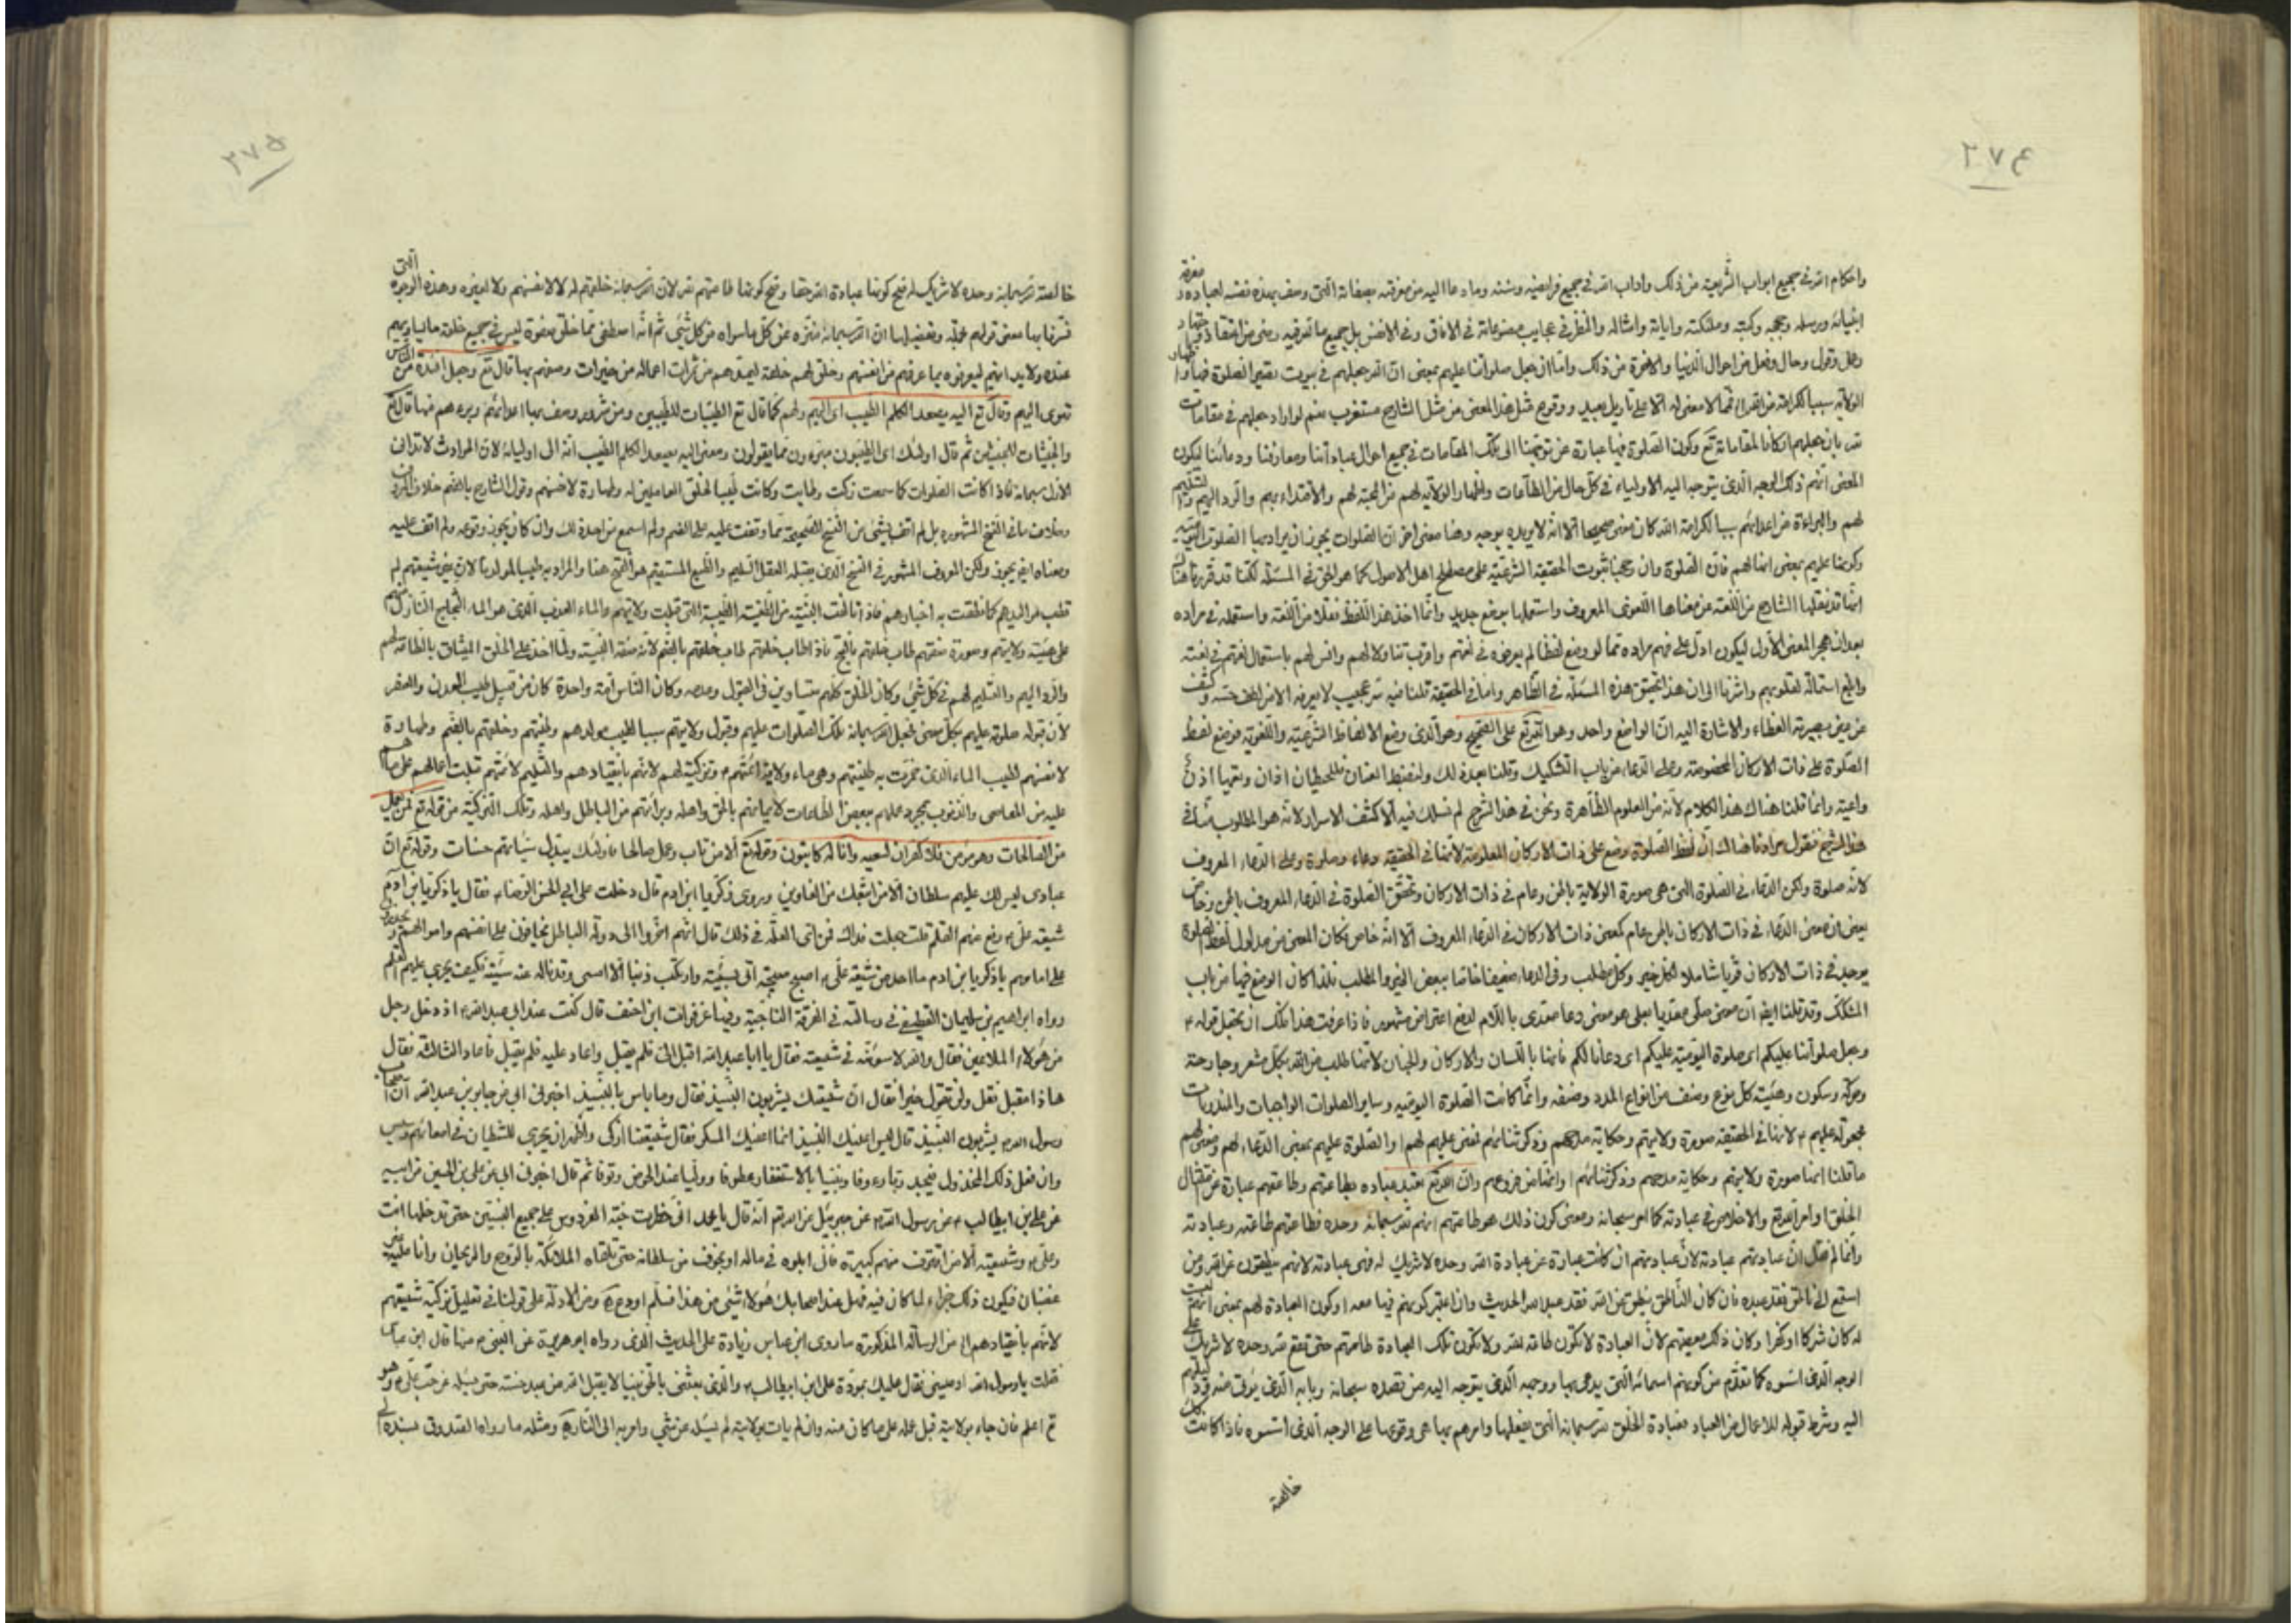 ٢٧٤
واحكام الله في جميع ابواب الشريعة من ذلك واداب الله في جميع فرايضه وسننه وما دعا اليه من معرفته بصفاته التي وصف بهذه نفسه لعباده ومعرفة
انبيائه ورسله وحججه وكتبه وملئكته واياته وامثاله والنظر في عجايب مصنوعاته في الافاق وفي الانفس بل جميع ما تعرف به
وعمل وقول وحال وفعل من احوال الدنيا والاخرة من ذلك واما ان جعل صلواتنا عليهم بمعنى ان الله جعلهم في بيوت
الولاية سببا لكرامته من الله لنا فمما لا معنى له الا على تاويل بعيد ووقوع مثل هذا المعنى من مثل الشارح مستغرب نعم لو اراد جعلهم في مقامات
بان جعلهم اركانا لمقاماته تع وكون الصلوة فيها عبارة عن توجهنا الى تلك المقامات في جميع احوال عباداتنا ومعارفنا ودعائنا ليكون
المعنى انهم ذلك الوجه الذي يتوجه اليه الاولياء في كل حال من الطاعات واظهار الولاية لهم من المحبة لهم والاقتداء بهم والرد اليهم والتسليم
لهم والبراءة من اعدائهم سببا لكرامة الله كان معنى صحيحا الا انه لا يريده بوجه وهنا معنى اخر ان الصلوات يجوز ان يراد بها الصلوة اليومية
وكونها عليهم بمعنى انها لهم فان الصلوة وان رجحنا ثبوت الحقيقة الشرعية على مصطلح اهل الاصول كما هو الحق في المسئلة لكنا قد قررنا هناك
انما قد نقلها الشارع من اللغة عن معناها اللغوي المعروف واستعملها بوضع جديد وانما اخذ هذا اللفظ نقلا من اللغة واستعمله في مراده
بعد ان هجر المعنى الاول ليكون ادل على فهم مراده مما لو وضع لفظا لم يعرفوه في لغتهم واقرب تناولا لهم وانس لهم باستعمال لغتهم في لغته
واوقع استمالة لقلوبهم واشرنا الى ان هذا تحقيق هذه المسئلة في الظاهر واما في الحقيقة قلنا فيه سر عجيب لا يعرفه الا من لطف حسه وكشف
عن عين بصيرته الغطاء والاشارة اليه ان الواضع واحد وهو الله تع على الصحيح وهو الذي وضع الالفاظ الشرعية واللغوية فوضع لفظ
الصلوة على ذات الاركان المخصوصة وعلى الدعاء من باب التشكيك وقلنا بعد ذلك ولنقبض العنان فللحيطان اذان وتعيها اذن
واعية وانما قلنا هناك هذا الكلام لانه من العلوم الظاهرة ونحن في هذا الشرح لم نسلك فيه الا كشف الاسرار لانه هو المطلوب منا في
هذا الشرح فنقول مرادنا هنالك ان لفظ الصلوة وضع على ذات الاركان المعلومة لانها في الحقيقة دعاء وصلوة وعلى الدعاء المعروف
لانه صلوة ولكن الدعاء في الصلوة التي هي صورة الولاية بالجن وعام في ذات الاركان وتحقق الصلوة في الدعاء المعروف بالجن وخاص
يعني ان معنى الدعاء في ذات الاركان عام كمعنى ذات الاركان في الدعاء المعروف الا انه خاص فكان المعنى من مدلول لفظ الصلوة
يوجد في ذات الاركان قويا شاملا لكل خير وكل مطلب وفي الدعاء ضعيفا خاصا ببعض الخير والمطلب فلذا كان الوضع فيها من باب
المشكك وقد قلنا ايضا ان معنى صلى معديا بعلى هو معنى دعا متعدى باللام لدفع اعتراض مشهور فاذا عرفت هذا امكنك ان يحتمل قوله ع
وجعل صلواتنا عليكم اى صلوة اليومية عليكم اى دعانا لكم فانها باللسان والاركان والجنان لانها طلب من الله بكل مشعر وجارحة
وحركة وسكون وهيئة كل نوع وصنف من انواع المدد وصنفه وانما كانت الصلوة اليومية وساير الصلوات الواجبات والمندوبات
مجعولة عليهم ع لانها في الحقيقة صورة ولايتهم وحكاية مدحهم وذكر ثنائهم فمعنى عليهم لهم اوالصلوة عليهم بمعنى الدعاء لهم ومعنى لهم
ما قلنا انها صورة ولايتهم وحكاية مدحهم وذكر ثنائهم اوانها من فروعهم وان الله تع تعبد عباده بطاعتهم وطاعتهم عبارة عن امتثال
الخلق اوامر الله تع والاخلاص في عبادته كما امر سبحانه ومعنى كون ذلك هو طاعتهم انهم لله سبحانه وحده فطاعتهم طاعته وعبادته
وانما لم نقل ان عبادتهم عبادته لان عبادتهم ان كانت عبارة عن عبادة الله وحده لا شريك له فهى عبادته لانهم ينطقون عن الله ومن
استمع الى ناطق فقد عبده فان كان الناطق ينطق عن الله فقد عبد الله الحديث وان اعتبر كونهم فيها معه اوكون العبادة لهم بمعنى انهم
له كان شركا اوكفرا وكان ذلك معصيتهم لان العبادة لا تكون طاعة لله ولا تكون تلك العبادة طاعتهم حتى تقع لله وحده لا شريك
الوجه الذي اسسوه كما تقدم من كونهم اسمائه التي يدعى بها ووجهه الذي يتوجه اليه من قصده سبحانه وبابه الذي يؤتى منه
اليه وشرط قبوله للاعمال من العباد فعبادة الخلق لله سبحانه التي يفعلها وامرهم بها هي وقوعها على الوجه الذي اسسوه فاذا كانت
خالصة
٢٧٥
خالصة لله سبحانه وحده لا شريك له صح كونها عبادة الله حقا وصح كونها طاعتهم لله لان الله سبحانه خلقهم له لا لانفسهم ولا لغيره وهذه الوجوه التي
فسرنا بها معنى قولهم ان الله سبحانه منزه عن كل ما سواه من كل شئ ثم انه اصطفى مما خلق صفوة ليس في جميع خلقه ما يساويهم
عنده ولا يدانيهم ليعرفوه بما عرفهم من انفسهم وخلق لهم خلقه ليمدهم من ثمرات اعماله من خيرات وصفهم بها قال تع وجعل افئدة من الناس
تهوى اليهم وقال تع اليه يصعد الكلم الطيب اى اليهم ولهم كما قال تع الطيبات للطيبين ومن شرور وصف بها اعدائهم وبرءهم منها قال تع
والخبيثات للخبيثين ثم قال اولئك اى الطيبون مبرءون مما يقولون ومعنى اليه يصعد الكلم الطيب انه الى اوليائه لان الحوادث لا تدانى
الازل سبحانه فاذا كانت الصلوات كما سمعت زكت وطابت وكانت طيبا لخلق العاملين له وطهارة لانفسهم وقول الشارح بالضم خلاف
وخلاف ما في النسخ المشهورة بل لم اقف بشئ من النسخ الصحيحة مما وقفت عليه على الضم ولم اسمع من احد ذلك وان كان يجوز وقوعه ولم اقف عليه
ومعناه ايض يجوز ولكن المعروف المشهور في النسخ الذي يقبله العقل السليم والطبع المستقيم هو الفتح هنا والمراد به طيب المولد لان شيعتهم لم
تطب مواليدهم كما نطقت به اخبارهم فاذا تالفت البنية من الطينة الطيبة التي قبلت ولايتهم والماء العذب الذي هو الماء الثجاج النازل
على هيئة ولايتهم وصورة صفتهم طاب خلقهم بالفتح فاذا طاب خلقهم طاب خلقهم بالضم لانه صفة البنية ولما اخذ على الخلق الميثاق بالطاعة لهم
والرد اليهم والتسليم لهم في كل شئ وكان الخلق كلهم متساوين في القبول وعدمه وكان الناس امة واحدة كان من قبيل طيب المعدن والعنصر
لان قبوله صلوته عليهم بكل معنى فجعل الله سبحانه تلك الصلوات عليهم وقبول ولايتهم سببا لطيب مولدهم وطينتهم وخلقهم بالضم وطهارة
لانفسهم لطيب الماء الذي عجنت به طينتهم وهي ماء ولاية ائمتهم ع وتزكية لهم لانهم بانقيادهم والتسليم لائمتهم قبلت اعمالهم على ما هم
عليه من المعاصى والذنوب بمجرد عملهم ببعض الطاعات لايمانهم بالحق واهله وبرائتهم من الباطل واهله وتلك التزكية من قوله تع فمن يعمل
من الصالحات وهو مؤمن فلا كفران لسعيه وانا له كاتبون وقوله تع الا من تاب وعمل صالحا فاولئك يبدل سيئاتهم حسنات وقوله تع ان
عبادى ليس لك عليهم سلطان الا من اتبعك من الغاوين وروى زكريا ابن ادم قال دخلت على ابي الحسن الرضا ع فقال يا زكريا ابن ادم
شيعة علي ع رفع عنهم القلم قلت جعلت فداك فمن اى العلة في ذلك قال انهم اخروا الى دولة الباطل يخافون على انفسهم واموالهم
على امامهم يا زكريا ابن ادم ما احد من شيعة علي ع اصبح صبيحة اتى بسيئة وارتكب ذنبا الا امسى وقد ناله غم حط عنه سيئة فكيف يجرى عليهم القلم
رواه ابراهيم بن سليمان القطيفى في رسالته في الفرقة الناجية وفيها عن فرات ابن احنف قال كنت عند ابى عبد الله ع اذ دخل رجل
من هؤلاء الملاعين فقال والله لاسوئنه في شيعته فقال يا ابا عبد الله اقبل الي فلم يقبل واعاد عليه فلم يقبل فاعاد الثالثة فقال
ها انا مقبل فقل ولن تقول خيرا فقال ان شيعتك يشربون النبيذ فقال وما باس بالنبيذ اخبرنى ابي عن جابر بن عبد الله ان اصحاب
رسول الله ص يشربون النبيذ قال ليس اعنيك النبيذ انما اعنيك المسكر فقال شيعتنا ازكى واطهر ان يجرى للشيطان في امعائهم رسيس
وان فعل ذلك المخذول فيجد ربا رءوفا ونبيا بالاستغفار عطوفا ووليا عند الحوض ولوفا ثم قال اخبرنى ابي عن علي بن الحسين عن ابيه
عن علي بن ابيطالب ع عن رسول الله ص عن جبرئيل عن الله تع انه قال يا محمد انى حظرت جنة الفردوس على جميع النبيين حتى تدخلها انت
وعلي ع وشيعته الا من اقترف منهم كبيرة فانى ابلوه في ماله او بخوف من سلطانه حتى تلقاه الملائكة بالروح والريحان وانا عليه غير
غضبان فيكون ذلك جزاء لما كان فيه فهل عند اصحابك هؤلاء شئ من هذا فسلم او دع ومن الادلة على قولنا في تعليل تزكية شيعتهم
لانهم بانقيادهم الخ من الرسالة المذكورة ما روى ابن عباس زيادة على الحديث الذي رواه ابو هريرة عن النبي ص منها قال ابن عباس
فقلت يا رسول الله اوصينى فقال عليك بمودة علي ابن ابيطالب ع والذي بعثنى بالحق نبيا لا يقبل الله من عبد حسنة حتى يسئله عن حب علي ع وهو
تع اعلم فان جاء بولايته قبل عمله على ما كان منه وان لم يات بولايته لم يسئله عن شئ وامر به الى النار ومثله ما رواه الصدوق بسنده الى